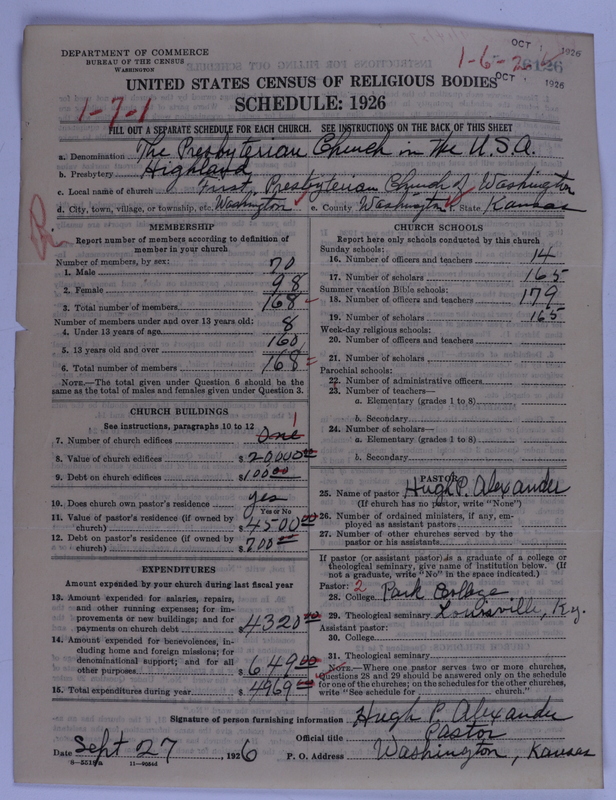 DEPARTMENT OF COMMERCE
BUREAU OF THE CENSUS
WASHINGTON
OCT 1 1926
1-6-2
OCT 1926
UNITED STATES CENSUS OF RELIGIOUS BODIES
SCHEDULE: 1926
1-7-1
FILL OUT A SEPARATE SCHEDULE FOR EACH CHURCH. SEE INSTRUCTIONS ON THE BACK OF THIS SHEET
a. Denomination The Presbyterian Church in the U.S.A.
b. Presbytery Highland
c. Local name of church First Presbyterian Church of Washington
d. City, town, village, or township, etc. Washington e. County Washington f. State Kansas
MEMBERSHIP
Report number of members according to definition of member in your church
Number of members, by sex:
1. Male 70
2. Female 98
3. Total number of members 168
Number of members under and over 13 years old:
4. Under 13 years of age 8
5. 13 years old and over 160
6. Total number of members 168
NOTE.—The total given under Question 6 should be the
same as the total of males and females given under Question 3.
CHURCH BUILDINGS
See instructions, paragraphs 10 to 12
7. Number of church edifices One 1
8. Value of church edifices $ 20,000 00
9. Debt on church edifices $ 100 00
10. Does church own pastor's residence yes
Yes or No
11. Value of pastor's residence (if owned by
church) $ 4500 00
12. Debt on pastor's residence (if owned by
church) $ 700
EXPENDITURES
Amount expended by your church during last fiscal year
13. Amount expended for salaries, repairs,
and other running expenses; for im-
provements or new buildings; and for
payments on church debt $ 4320 00
14. Amount expended for benevolences, in-
cluding home and foreign missions; for
denominational support; and for all
other purposes $ 649 00
15. Total expenditures during year $ 4969 00
CHURCH SCHOOLS
Report here only schools conducted by this church
Sunday schools:
16. Number of officers and teachers 14
17. Number of scholars 165
Summer vacation Bible schools:
18. Number of officers and teachers 179
19. Number of scholars 165
Week-day religious schools:
20. Number of officers and teachers
21. Number of scholars
Parochial schools:
22. Number of administrative officers
23. Number of teachers—
a. Elementary (grades 1 to 8)
b. Secondary
24. Number of scholars—
a. Elementary (grades 1 to 8)
b. Secondary
PASTOR
25. Name of pastor Hugh P. Alexander
(If church has no pastor, write "None")
26. Number of ordained ministers, if any, em-
ployed as assistant pastors
27. Number of other churches served by the
pastor or his assistants
If pastor (or assistant pastor) is a graduate of a college or
theological seminary, give name of institution below. (If
not a graduate, write "No" in the space indicated.)
Pastor: 2
28. College Park College
29. Theological seminary Louisville, Ky.
Assistant pastor:
30. College
31. Theological seminary
NOTE.—Where one pastor serves two or more churches,
Questions 28 and 29 should be answered only on the schedule
for one of the churches; on the schedules for the other churches,
write "See schedule for church."
Signature of person furnishing information Hugh P. Alexander
Official title Pastor
Date Sept 27, 1926 P. O. Address Washington, Kansas
8-5519a 11-9084d